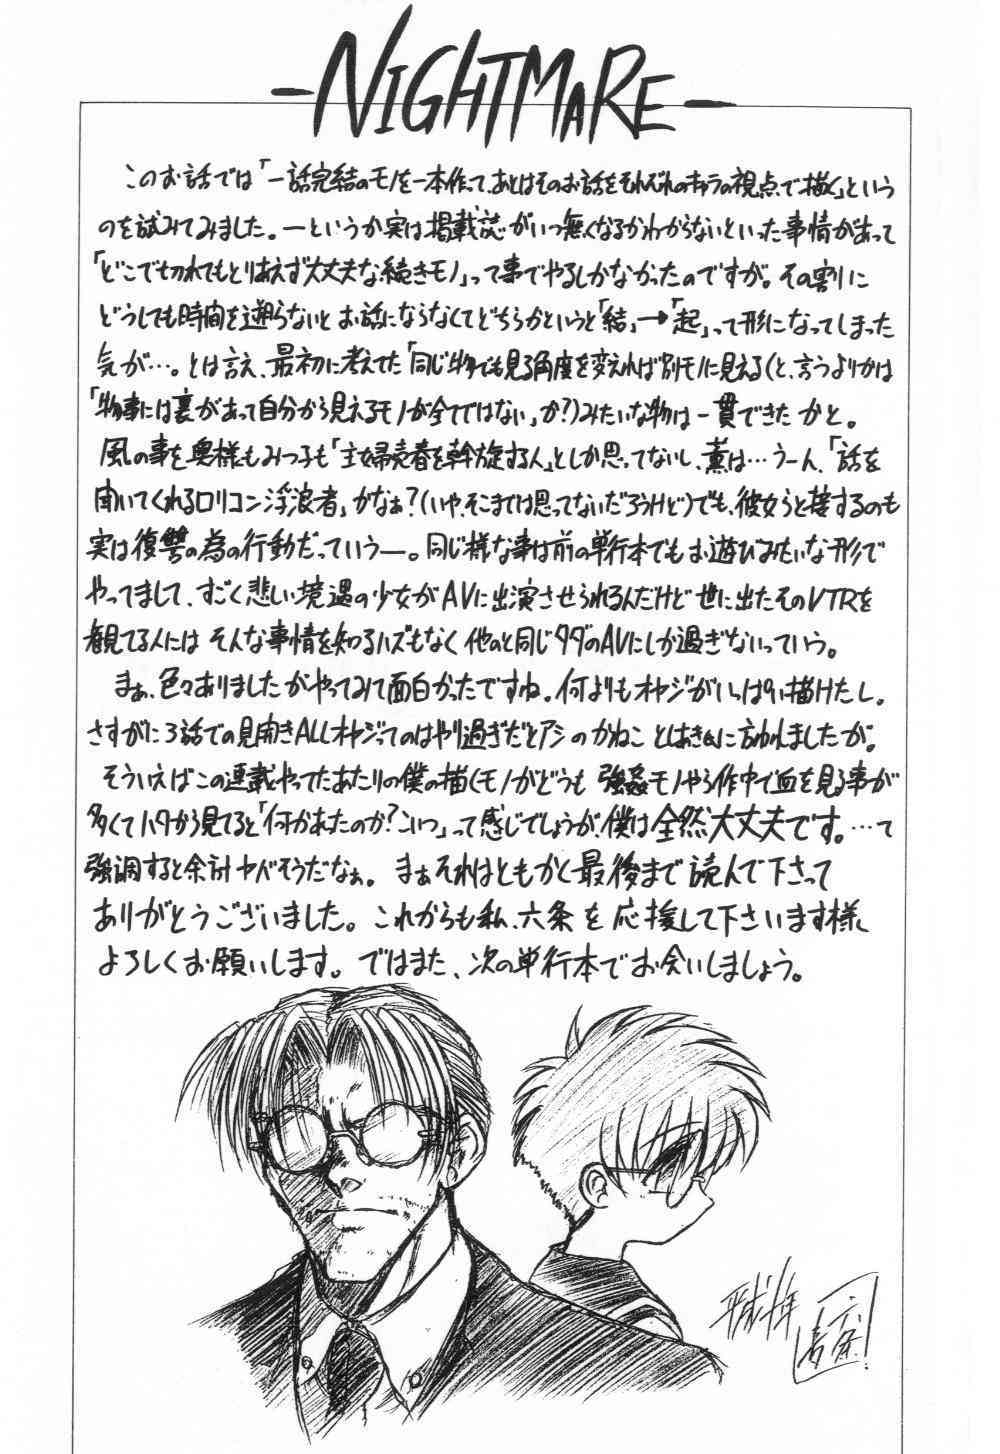 -NIGHTMARE-
このお話では「一話完結のモノを一本作って、あとはそのお話をそれぞれのキャラの視点で描く」という
のを試みてみました。ーというか実は掲載誌がいつ無くなるかわからないといった事情があって
「どこで切れてもとりあえず大丈夫な続きモノ」って事でやるしかなかったのですが。その割に
どうしても時間を遡らないとお話にならなくてどちらかというと「結」→「起」って形になってしまった
気が…。とは言え、最初に考えてた「同じ物でも見る角度を変えれば別モノに見える(と、言うよりかは
「物事には裏があって自分から見えるモノが全てではない」か?)みたいな物は一貫できたかと。
風の事を奥様もみつ子も「主婦売春を斡旋する人」としか思ってないし、薫は…うーん、「話を
聞いてくれるロリコン浮浪者」かなぁ?(いや、そこまでは思ってないだろうけど)でも、彼女らと接するのも
実は復讐の為の行動だっていうー。同じ様な事は前の単行本でもお遊びみたいな形で
やってまして、すごく悲しい境遇の少女がAVに出演させられるんだけど世に出たそのVTRを
観てる人にはそんな事情を知るハズもなく他のと同じタダのAVにしか過ぎないっていう。
まぁ、色々ありましたがやってみて面白かったですね。何よりもオヤジがいっぱい描けたし。
さすがに3話での見開きALLオヤジってのはやり過ぎだとアシのかねこ としあきくんに言われましたが。
そういえばこの連載やってたあたりの僕の描くモノがどうも強姦モノやら作中で血を見る事が
多くてハタから見てると「何かあたのか?こいつ」って感じでしょうが、僕は全然大丈夫です。…て
強調すると余計ヤバそうだなぁ。まぁそれはともかく最後まで読んで下さって
ありがとうございました。これからも私、六条を応援して下さいます様、
よろしくお願いします。ではまた、次の単行本でお会いしましょう。
平成十年